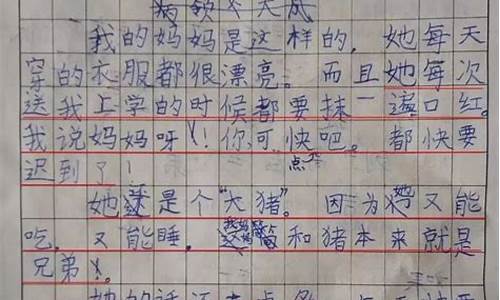 我的妈妈是这样的，她每天
穿的衣服都很漂亮。而且她每次
送我上学的时候都要抹一遍口红。
我说妈妈呀！你可快点吧。都快要
迟到了！
她是个“大猪”。因为她又能
吃，又能睡，我妈妈和猪本来就是
兄弟！
她的话还有点多